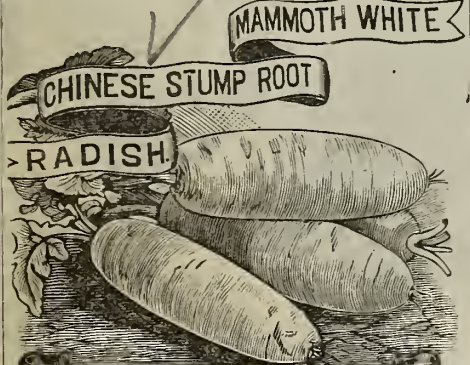 MAMMOTH WHITE
CHINESE STUMP ROOT
RADISH.